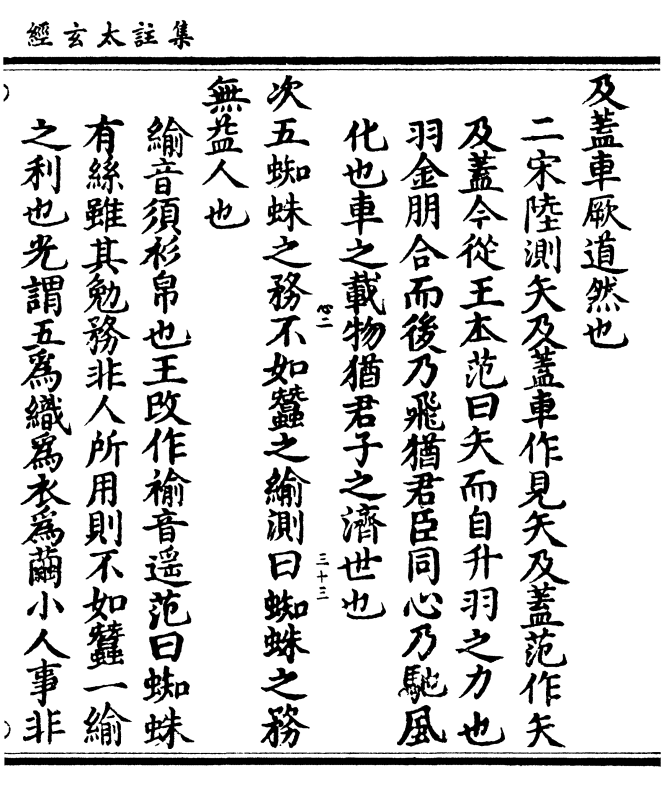 集註太玄經
及蓋車厥道然也
二宋陸測矢及蓋車作見矢及蓋范作矢
及蓋今從王本范曰矢而自升羽之力也
羽金朋合而後乃飛猶君臣同心乃馳風
化也車之載物猶君子之濟世也
心二
三十三
次五蜘蛛之務不如蠶之緰測曰蜘蛛之務
無益人也
緰音須衫帛也王改作褕音遥范曰蜘蛛
有絲雖其勉務非人所用則不如蠶一緰
之利也光謂五爲織爲衣爲繭小人事非